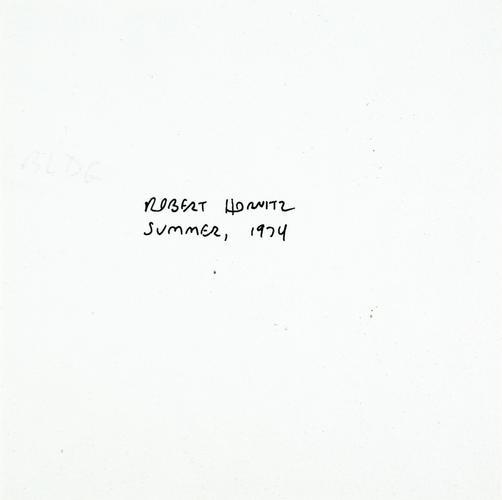 BLDG
ROBERT HORWITZ
SUMMER, 1974